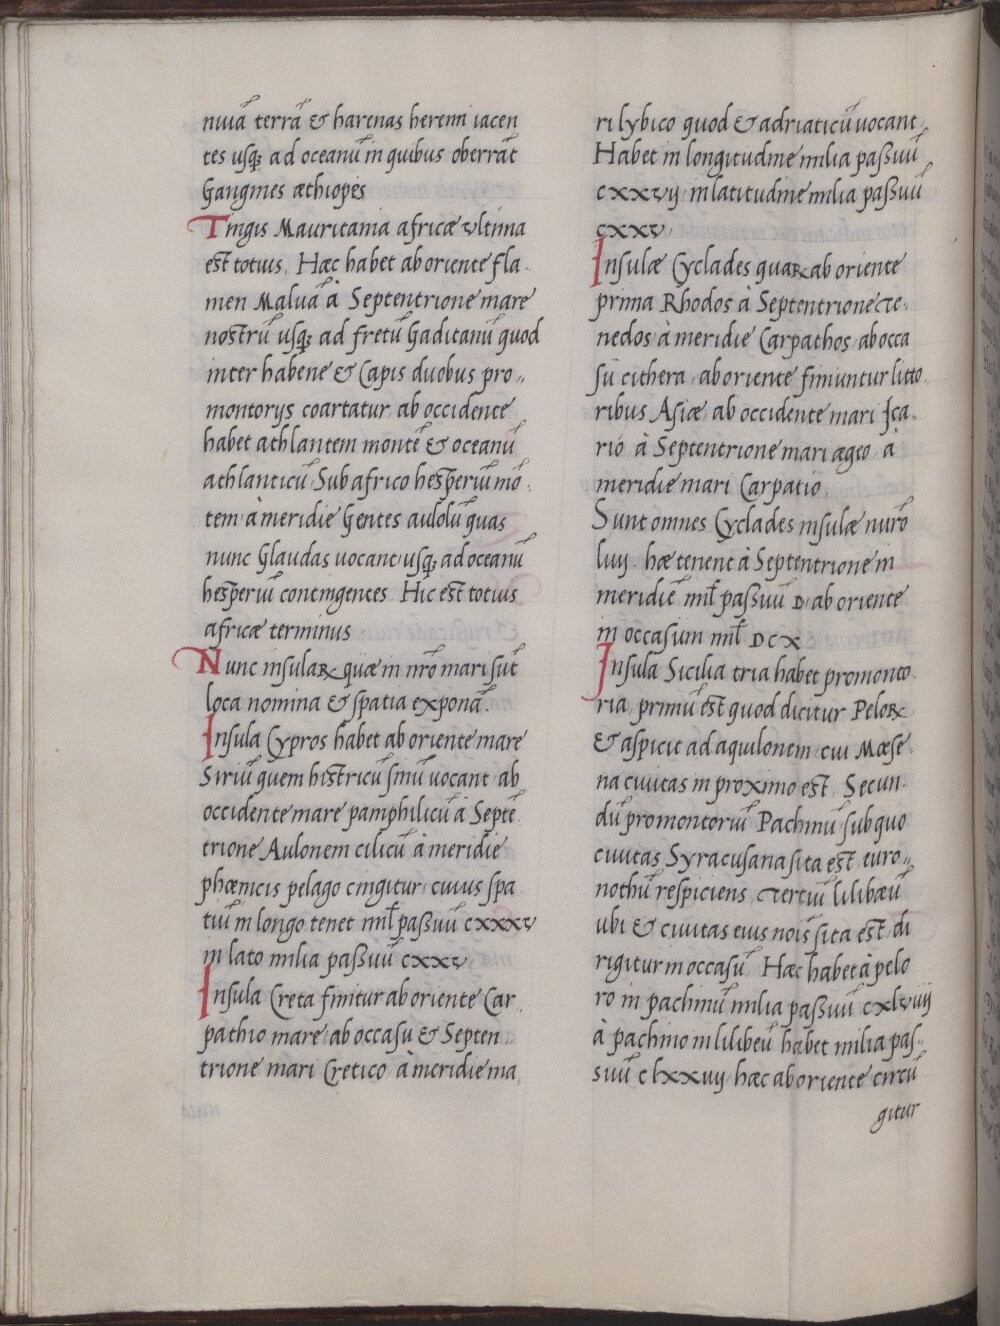 niuā terrā & harenas heremi iacen
tes usq; ad oceanū in quibus oberrāt
Gangines æthiopes
Tingis Mauritania africæ ultima
est totius, Hæc habet ab oriente fla,,
men Maluā à Septentrione mare
nostrū usq; ad fretū Gaditanū quod
inter habene & Capis duobus pro,,
montorijs coartatur ab occidente
habet athlantem montē & oceanū
athlanticū Sub africo hesperiū mō,
tem à meridie Gentes aulolū quas
nunc Glaudas uocant usq; ad oceanū
hesperiū contingentes. Hic est totius
africæ terminus
Nunc insulaꝝ quæ in nr̄o mari sūt
loca nomina & spatia exponā.
Insula Cypros habet ab oriente mare
Siriū quem histricū sinū uocant ab
occidente mare pamphilicū à Septē
trione Aulonem cilicū à meridie
phœnicis pelago cingitur cuius spa
tiū in longo tenet mil̄ paßuū cxxxv
in lato milia paßuū cxxv
Insula Creta finitur ab oriente Car,,
pathio mare ab occasu & Septen,,
trione mari Cretico à meridie ma,
ri lybico quod & adriaticū uocant.
Habet in longitudine milia paßuū
cxxvij in latitudine milia paßuū
cxxv,
Insulæ Cyclades quaꝝ ab oriente
prima Rhodos à Septentrione te,
nedos à meridie Carpathos ab occa
sū cithera ab oriente finiuntur litto
ribus Asiæ ab occidente mari Ica,,
riō à Septentrione mari ægeo à
meridie mari Carpatio
Sunt omnes Cyclades insulæ nu͞ro
liiij. hæ tenent à Septentrione in
meridiē mil̄ paßuū D ab oriente
in occasum mil̄ DCX
Insula Sicilia tria habet promonto,
ria primū est quod dicitur Peloꝝ
& aspicit ad aquilonem cui Mæse
na ciuitas in proximo est. Secun
dū promontoriū Pachinū sub quo
ciuitas Syracusana sita est euro,,
nothū respiciens. Tertiū lilibæū
ubi & ciuitas eius nois̄ sita est di
rigitur in occasū Hæc habet à pelo
ro in pachinū milia paßuū cxlviij
à pachino in lilibeū habet milia pas,,
suū clxxvij hæc ab oriente circū
gitur